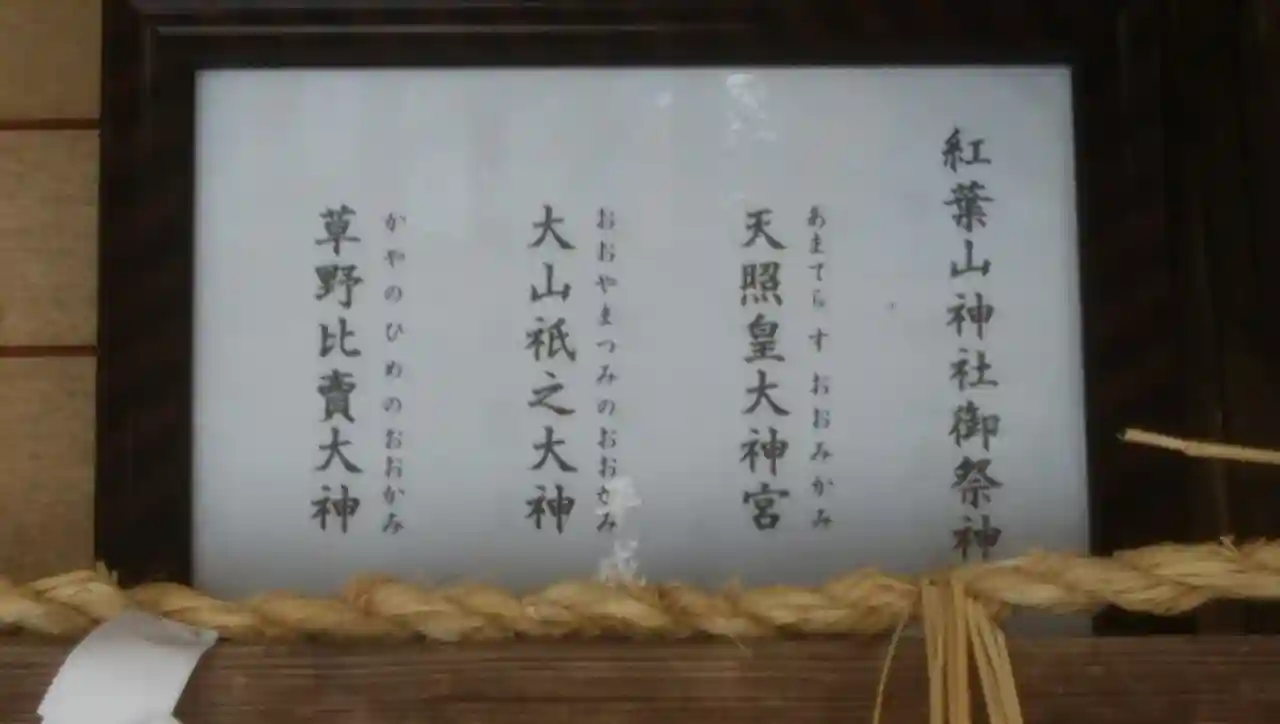 紅葉山神社御祭神
あまてらすおおみかみ
天照皇大神宮
おおやまつみのおおかみ
大山祇之大神
かやのひめのおおかみ
草野比賣大神